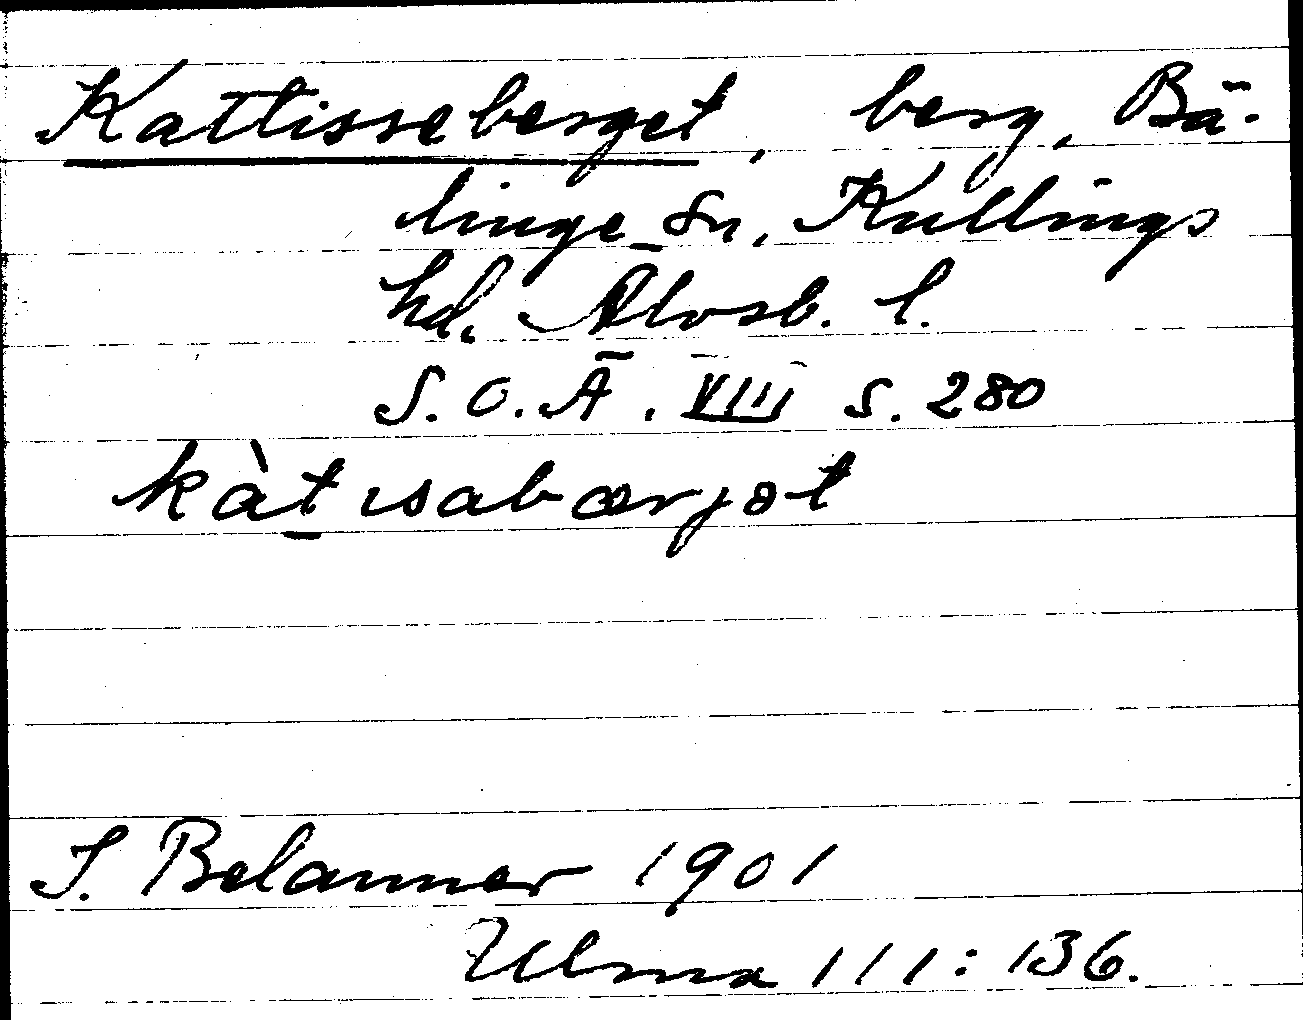 Kattisseberget, berg, Bä-
linge sn, Kullings
hd, Älvsb. l.
S. O. Ä. VIII s. 280
kàt ısabærjət
S. Belanner 1901
Ulma 111:136.